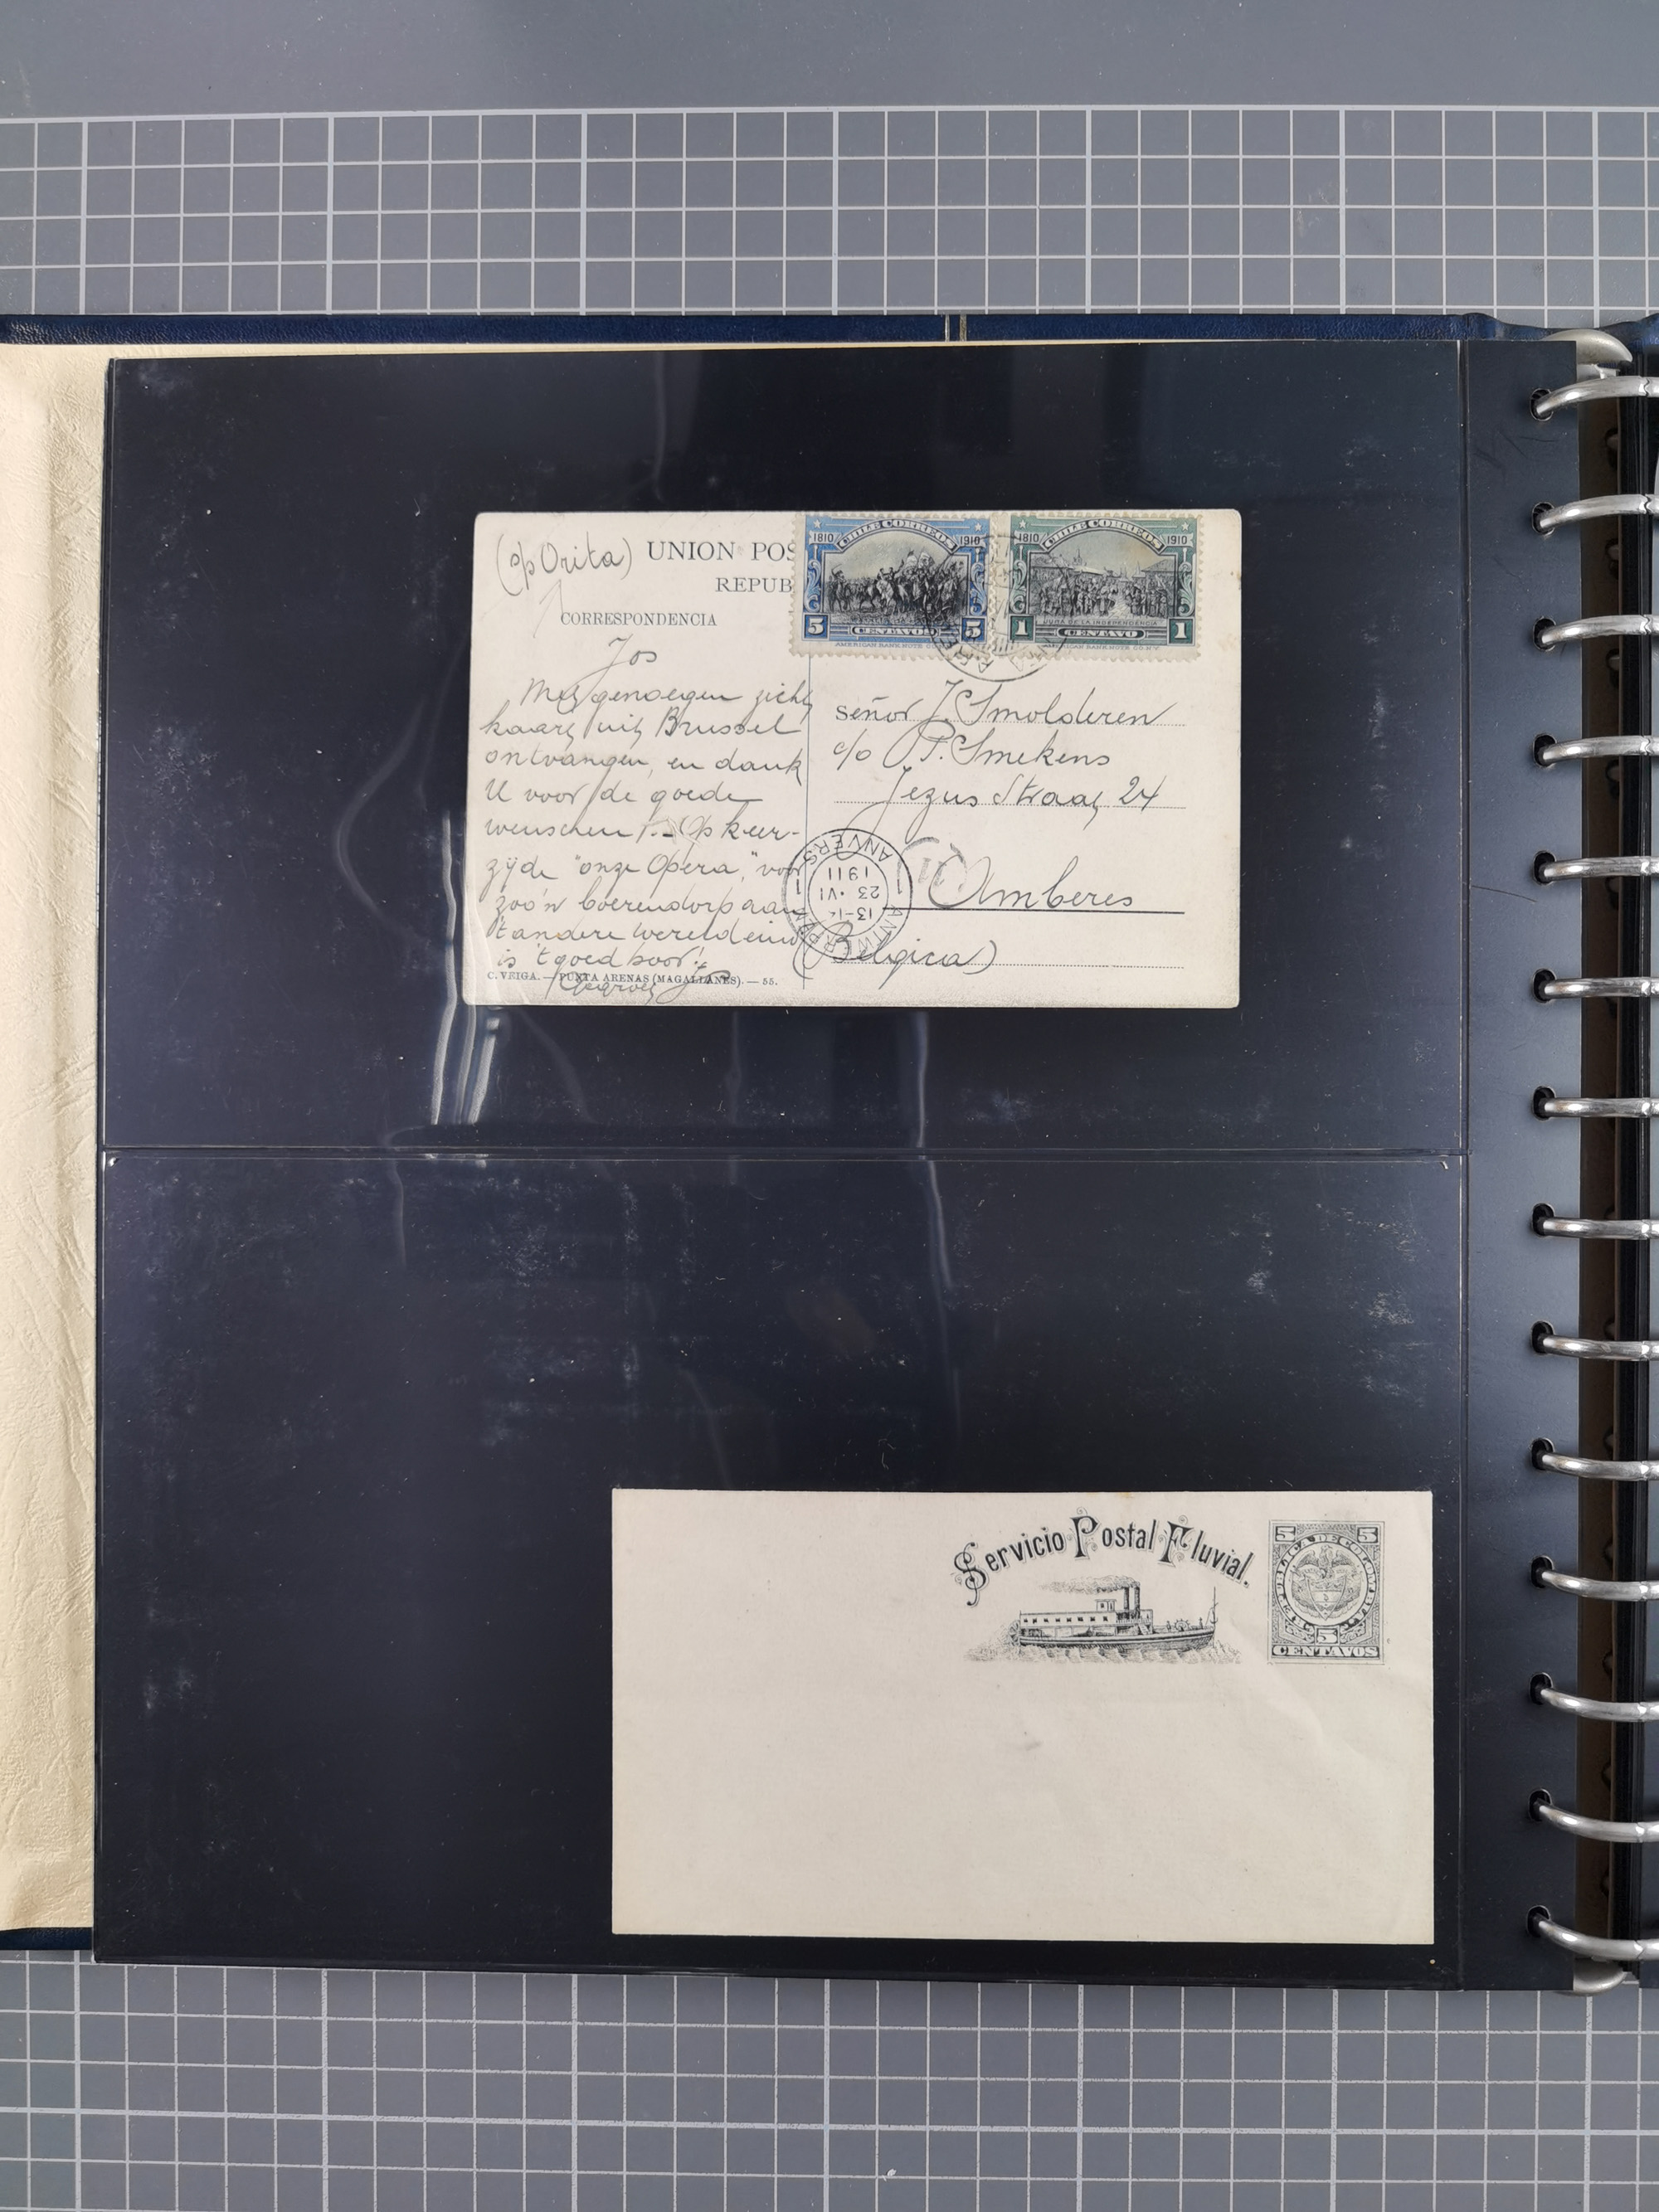 (p/p Orita)
UNION POS
REPUB
CORRESPONDENCIA
1810
CHILE CORREOS
1910
5
CENTAVOS
5
AMERICAN BANK NOTE CO. N.Y.
1810
CHILE CORREOS
1910
JURA DE LA INDEPENDENCIA
1
CENTAVO
1
AMERICAN BANK NOTE CO. N.Y.
Jos
Met genoegen zicht
kaart uit Brussel
ontvangen, en dank
U voor de goede
wenschen !. - Op keer-
zijde "onze Opera", voor
zoo'n boerendorp aan
't andere wereldeind
is 't goed hoor!
Gegroet Jos
C. VEIGA. — PUNTA ARENAS (MAGALLANES). — 55.
señor J. Smolderen
c/o P. Smekens
Jezus Straat 24
Amberes
(Belgica)
ANTWERPEN
13-14
23 · VI
1911
ANVERS
Servicio Postal Fluvial.
5
5
REPUBLICA DE COLOMBIA
5
CENTAVOS